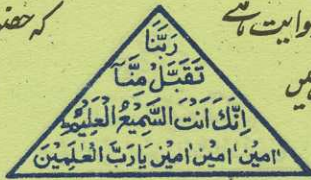 روایت ہے
کہ حضور
رَبَّنَا
تَقَبَّلْ مِنَّا
اِنَّكَ اَنْتَ السَّمِيْعُ الْعَلِيْمُ
اٰمین اٰمین اٰمین یَارَبَّ الْعٰلَمِیْنَ